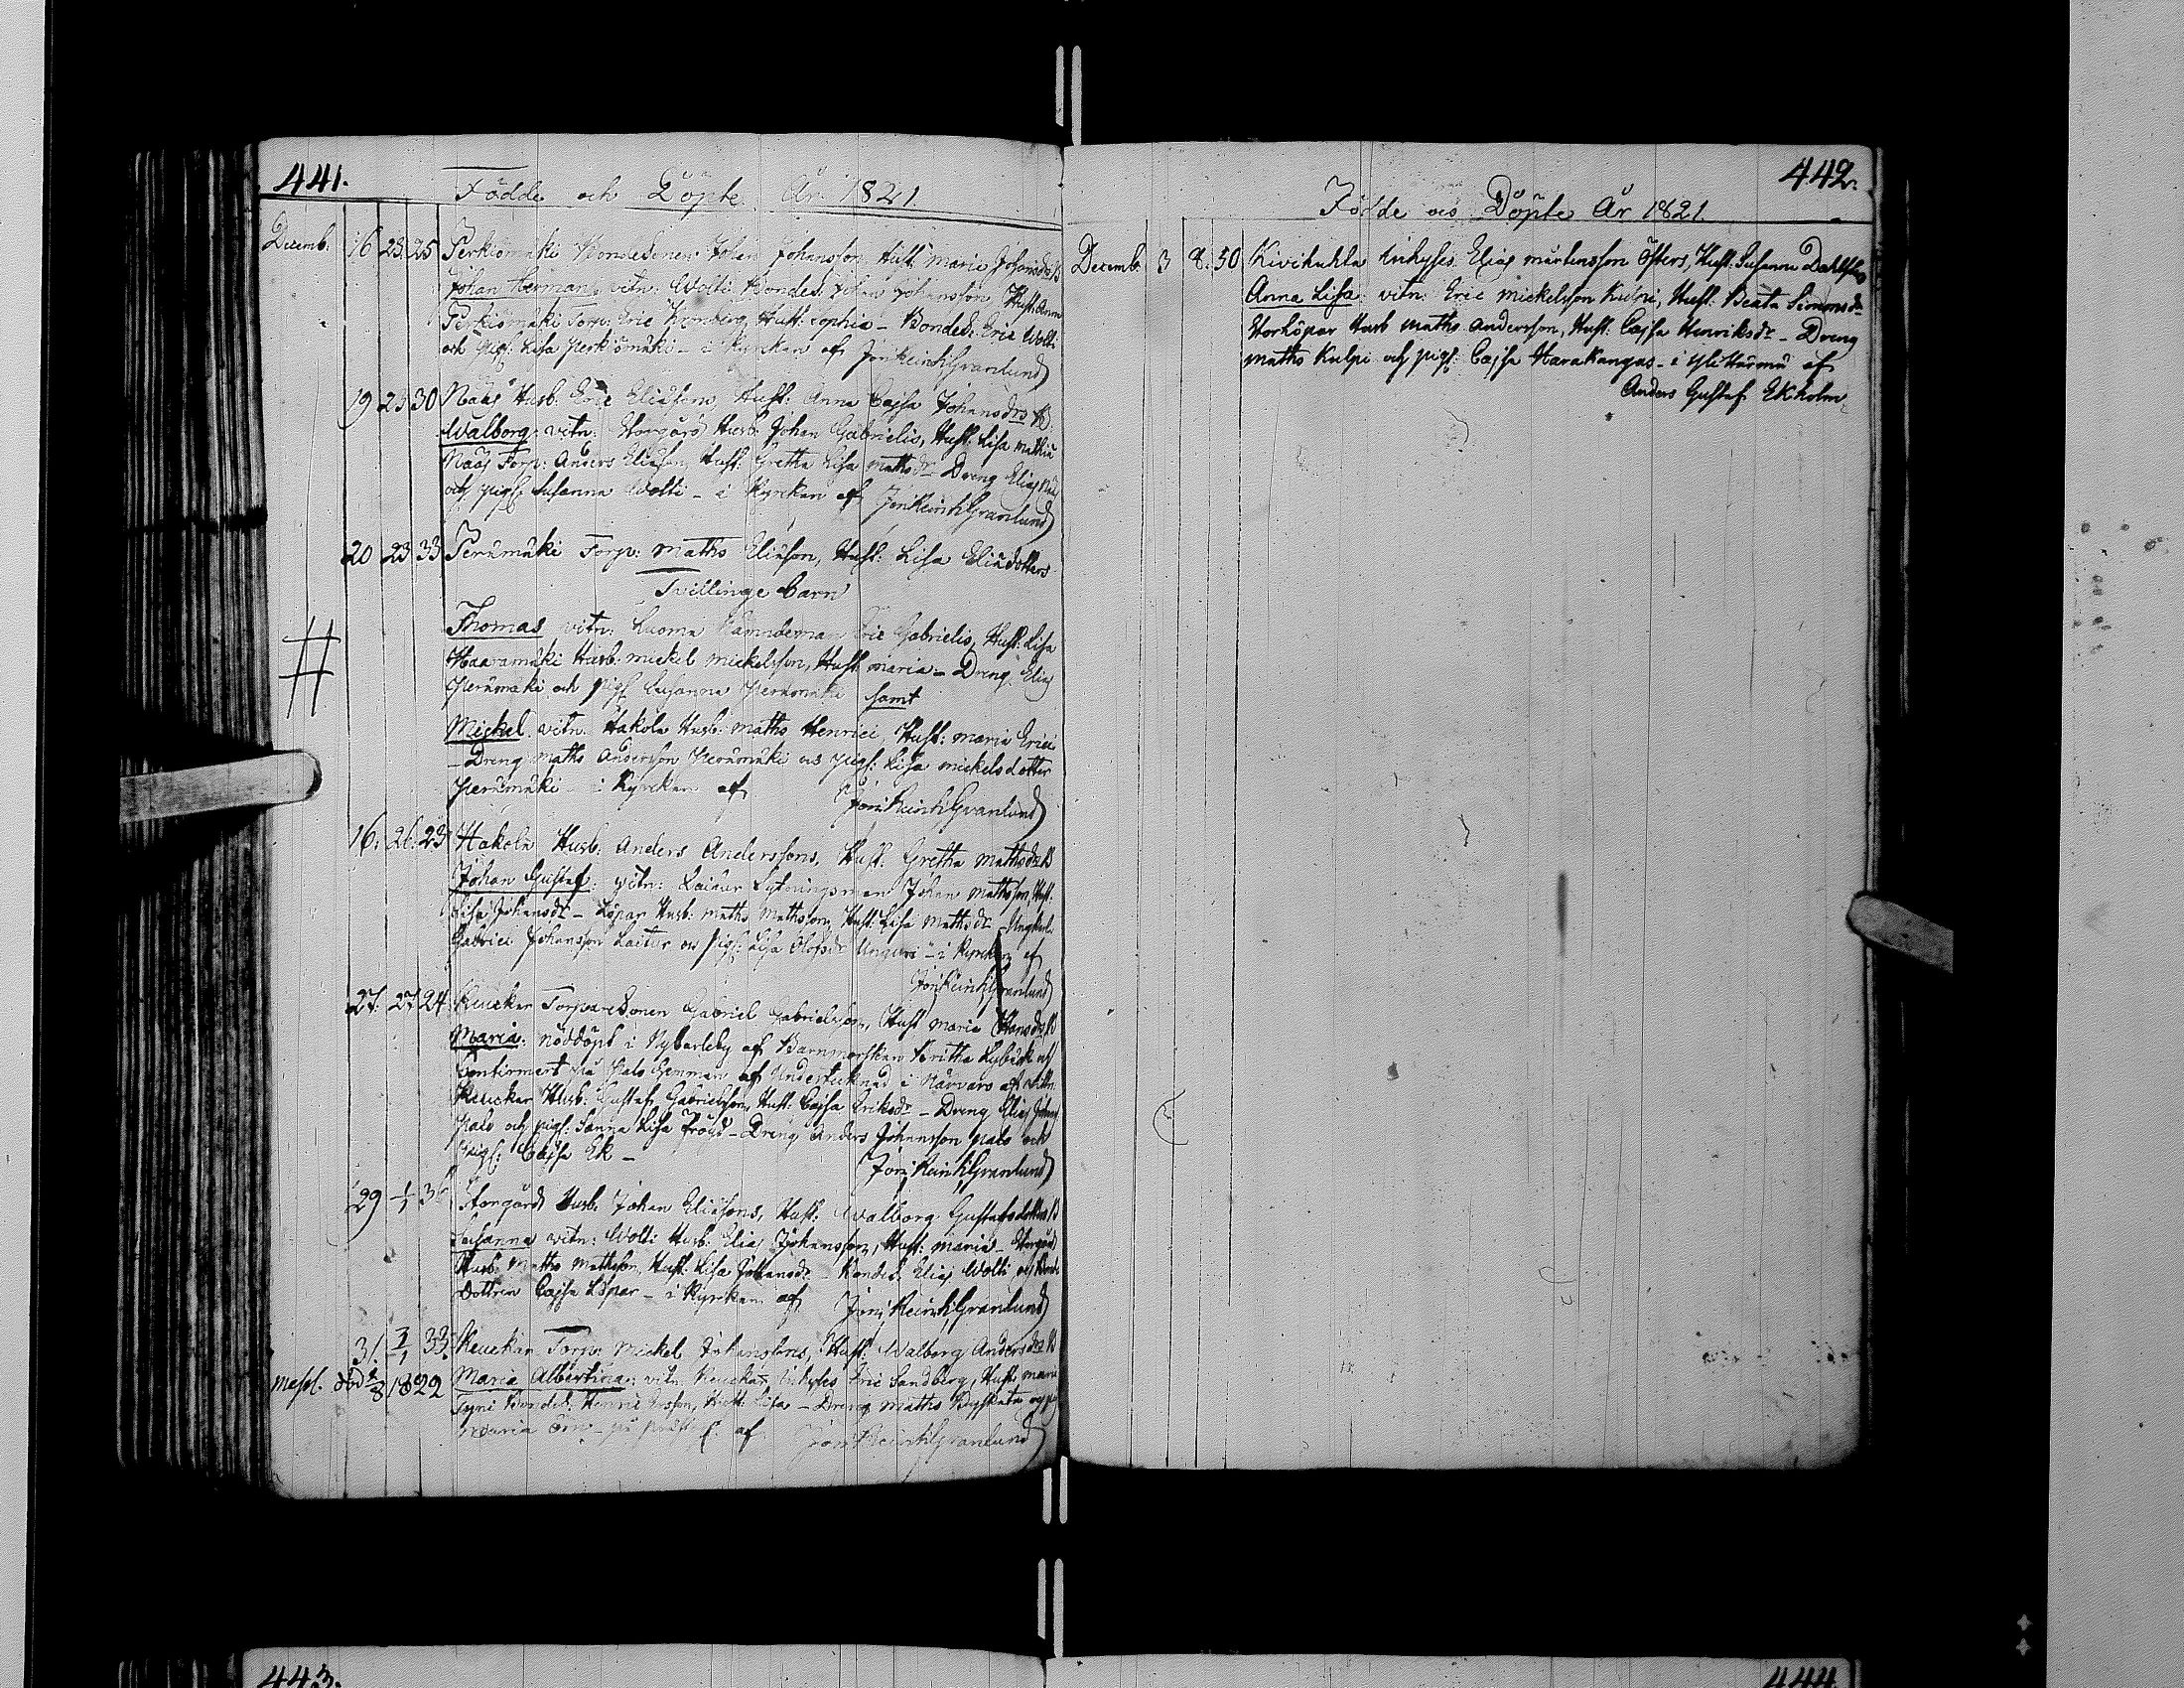 441.
Födde och Döpte År 1821
Decemb. 16 23. 25 Perkiömäki Bondesonen Johan Johansson Hust: Maria Johansdrs B
Johan Herman, vitn: Wolti Bondes: Johan Johansson, Hust: Anna
Perkiömäki Torp: Eric Kronberg, Hust: Sophia – Bondes: Eric Wolti
och pig: Lisa Perkiömäki – i Kyrckan af Jon: Reinh: Granlund
19 23 30 Naas Husb: Eric Eliäson, Hust: Anna Cajsa Johansdrs B.
Walborg: vitn: Storgård Husb: Johan Gabrielis, Hust: Lisa Mathiæ
Naas Torp: Anders Eliäson, Hust: Gretha Lisa Mathsdr – Dreng Elias
och pig: Susanna Wolti – i Kyrckan af Jon: Reinh: Granlund
20 23 33 Perämäki Torp: Maths Eliäson, Hust: Lisa Eliädotters
Tvillinge Barn
Thomas vitn: Luoma Eric Gabrielis, Hust: Lisa
# Haaramäki Husb: Mickel Mickelsson, Hust: Maria – Dreng Elias
Perämäki och pig: Susanna Perämäki samt
Mickel. vitn: Hakola Husb: Maths Henrici, Hust: Maria Erici
– Dreng Maths Andersson Perämäki och pig: Lisa Mickelsdotter
Perämäki – i Kyrckan af Jon: Reinh: Granlund
16: 26: 23 Hakola Husb: Anders Anderssons, Hust: Gretha Mathsdrs B
Johan Gustaf: vitn: Johan Mathsson, Hust:
Lisa Johansdr – Löpar Husb: Maths Mathsson, Hust: Lisa Mathsdr –
Gabriel Johansson och Pig: Lisa Olofsdr – i Kyrckan af
Jon: Reinh: Granlund
27: 27 24: Keuckar Torparesonen Gabriel Gabrielsson, Hust: Maria Hansdrs B
Maria: nöddöpt i Nykarleby af Barnmorskan Britha Lybäck och
Confirmert på Palo Hemman af Undertecknad i Närvaro af vittn:
Keuckar Husb: Gustaf Gabrielsson, Hust: Cajsa Eriksdr – Dreng Elias
Palo och pig: Sanna Lisa – Dreng Anders Johansson Palo och
Pig: Cajsa Ek – Jon: Reinh: Granlund
29 1/1 36 Storgård Husb: Johan Eliäsons, Hust: Walborg Gustafsdotters B
Susanna vitn: Wolti Husb: Elias Johansson, Hust: Maria – Storgård
Husb: Maths Mathsson, Hust: Lisa Johansdr – Bondes: Elias Wolti och Bonde
Dottren Cajsa Löpar – i Kyrckan af Jon: Reinh: Granlund
31. 3/1 33: Keuckar Torp: Mickel Johanssons, Hust: Walborg Andersdrs B
död 1822 Maria Albertina: vitn: Keuckar Inhyses Eric Sandberg, Hust: Maria
Bondes: Henric Hust: Lisa – Dreng Maths och
Maria – på af Jon: Reinh: Granlund
442.
Födde och Döpte År 1821.
Decemb. 3 8. 50 Kivihuhta Inhyses Elias Mårtensson Östers, Hust: Susanna
Anna Lisa: vitn: Eric Mickelsson Kulpi, Hust: Beata Simonsdr
Storlöpar Husb Maths Andersson, Hust: Cajsa Henriksdr – Dreng
Maths Kulpi och pig: Cajsa Harakangas – i Ylihärmä af
Anders Gustaf Ekholm
443.
444